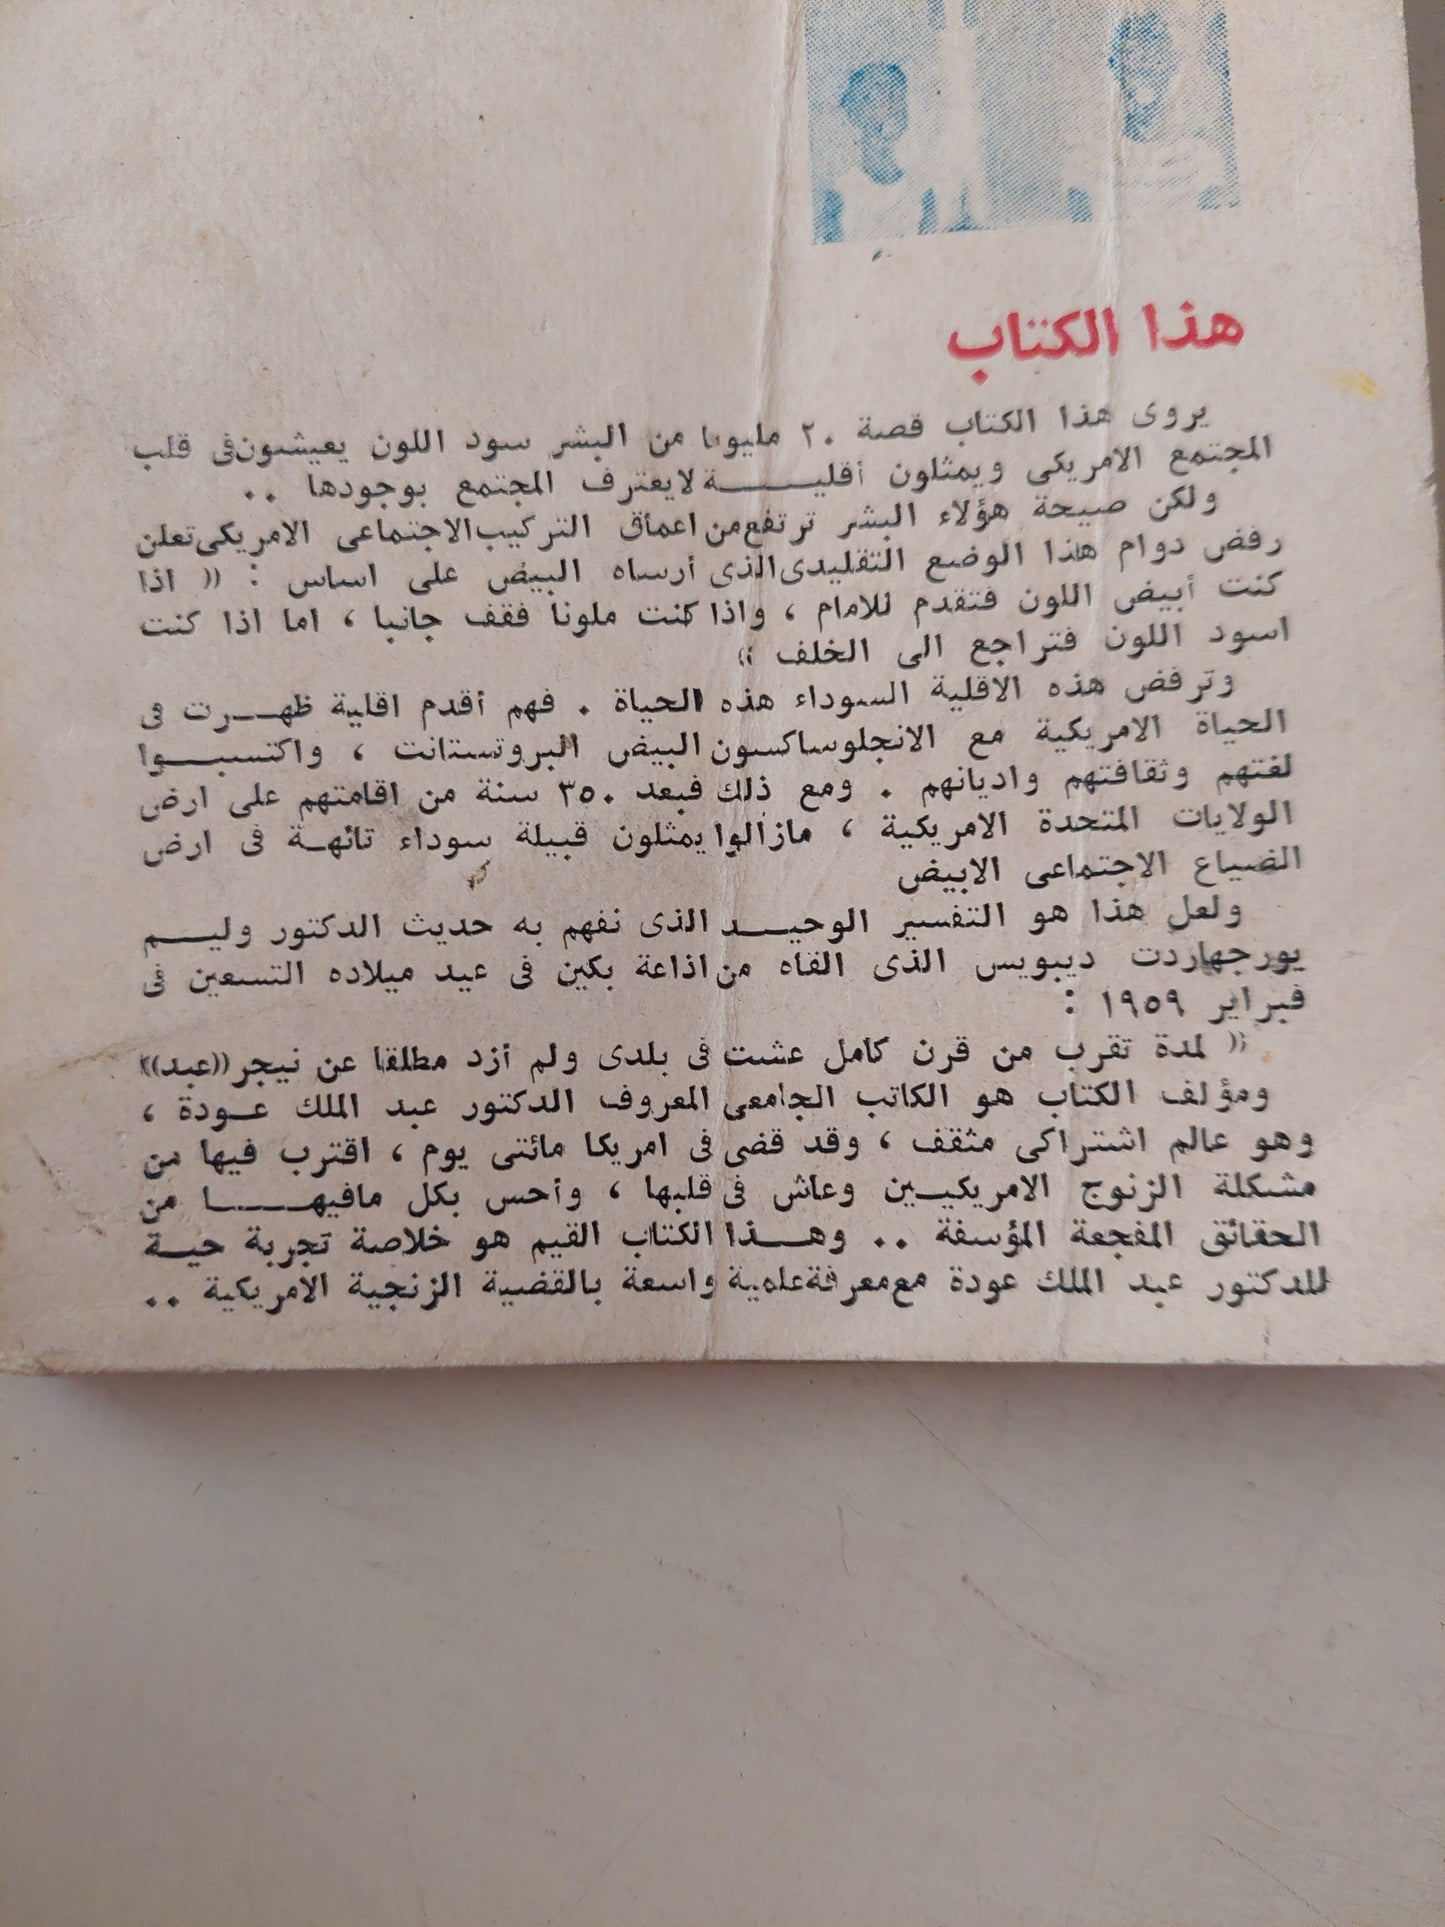 هذا الكتاب
يروى هذا الكتاب قصة ٢٠ مليونا من البشر سود اللون يعيشون فى قلب
المجتمع الامريكى ويمثلون أقليـــــة لايعترف المجتمع بوجودها ..
ولكن صيحة هؤلاء البشر ترتفع من اعماق التركيب الاجتماعى الامريكى تعلن
رفض دوام هذا الوضع التقليدى الذى أرساه البيض على اساس : (( اذا
كنت أبيض اللون فتقدم للامام ، واذا كنت ملونا فقف جانبا ، اما اذا كنت
اسود اللون فتراجع الى الخلف ))
وترفض هذه الاقلية السوداء هذه الحياة . فهم أقدم اقلية ظهـــرت فى
الحياة الامريكية مع الانجلوساكسون البيض البروتستانت ، واكتسبـــوا
لغتهم وثقافتهم واديانهم . ومع ذلك فبعد ٣٥٠ سنة من اقامتهم على ارض
الولايات المتحدة الامريكية ، مازالوا يمثلون قبيلة سوداء تائهـة فى ارض
الضياع الاجتماعى الابيض
ولعل هذا هو التفسير الوحيـــد الذى نفهم به حديث الدكتور وليـــم
يورجهاردت ديبويس الذى القاه من اذاعة بكين فى عيد ميلاده التسعين فى
فبراير ١٩٥٩ :
(( لمدة تقرب من قرن كامل عشت فى بلدى ولم أزد مطلقا عن نيجر ((عبد))
ومؤلف الكتاب هو الكاتب الجامعى المعروف الدكتور عبد الملك عــودة ،
وهو عالم اشتراكى مثقف ، وقد قضى فى امريكا مائتى يوم ، اقترب فيها من
مشكلة الزنوج الامريكيــين وعاش فى قلبها ، وأحس بكل مافيهـــــا من
الحقائق المفجعة المؤسفة .. وهـــذا الكتاب القيم هو خلاصة تجربة حيــة
للدكتور عبد الملك عودة مع معرفة علمية واسعة بالقضية الزنجية الامريكية ..